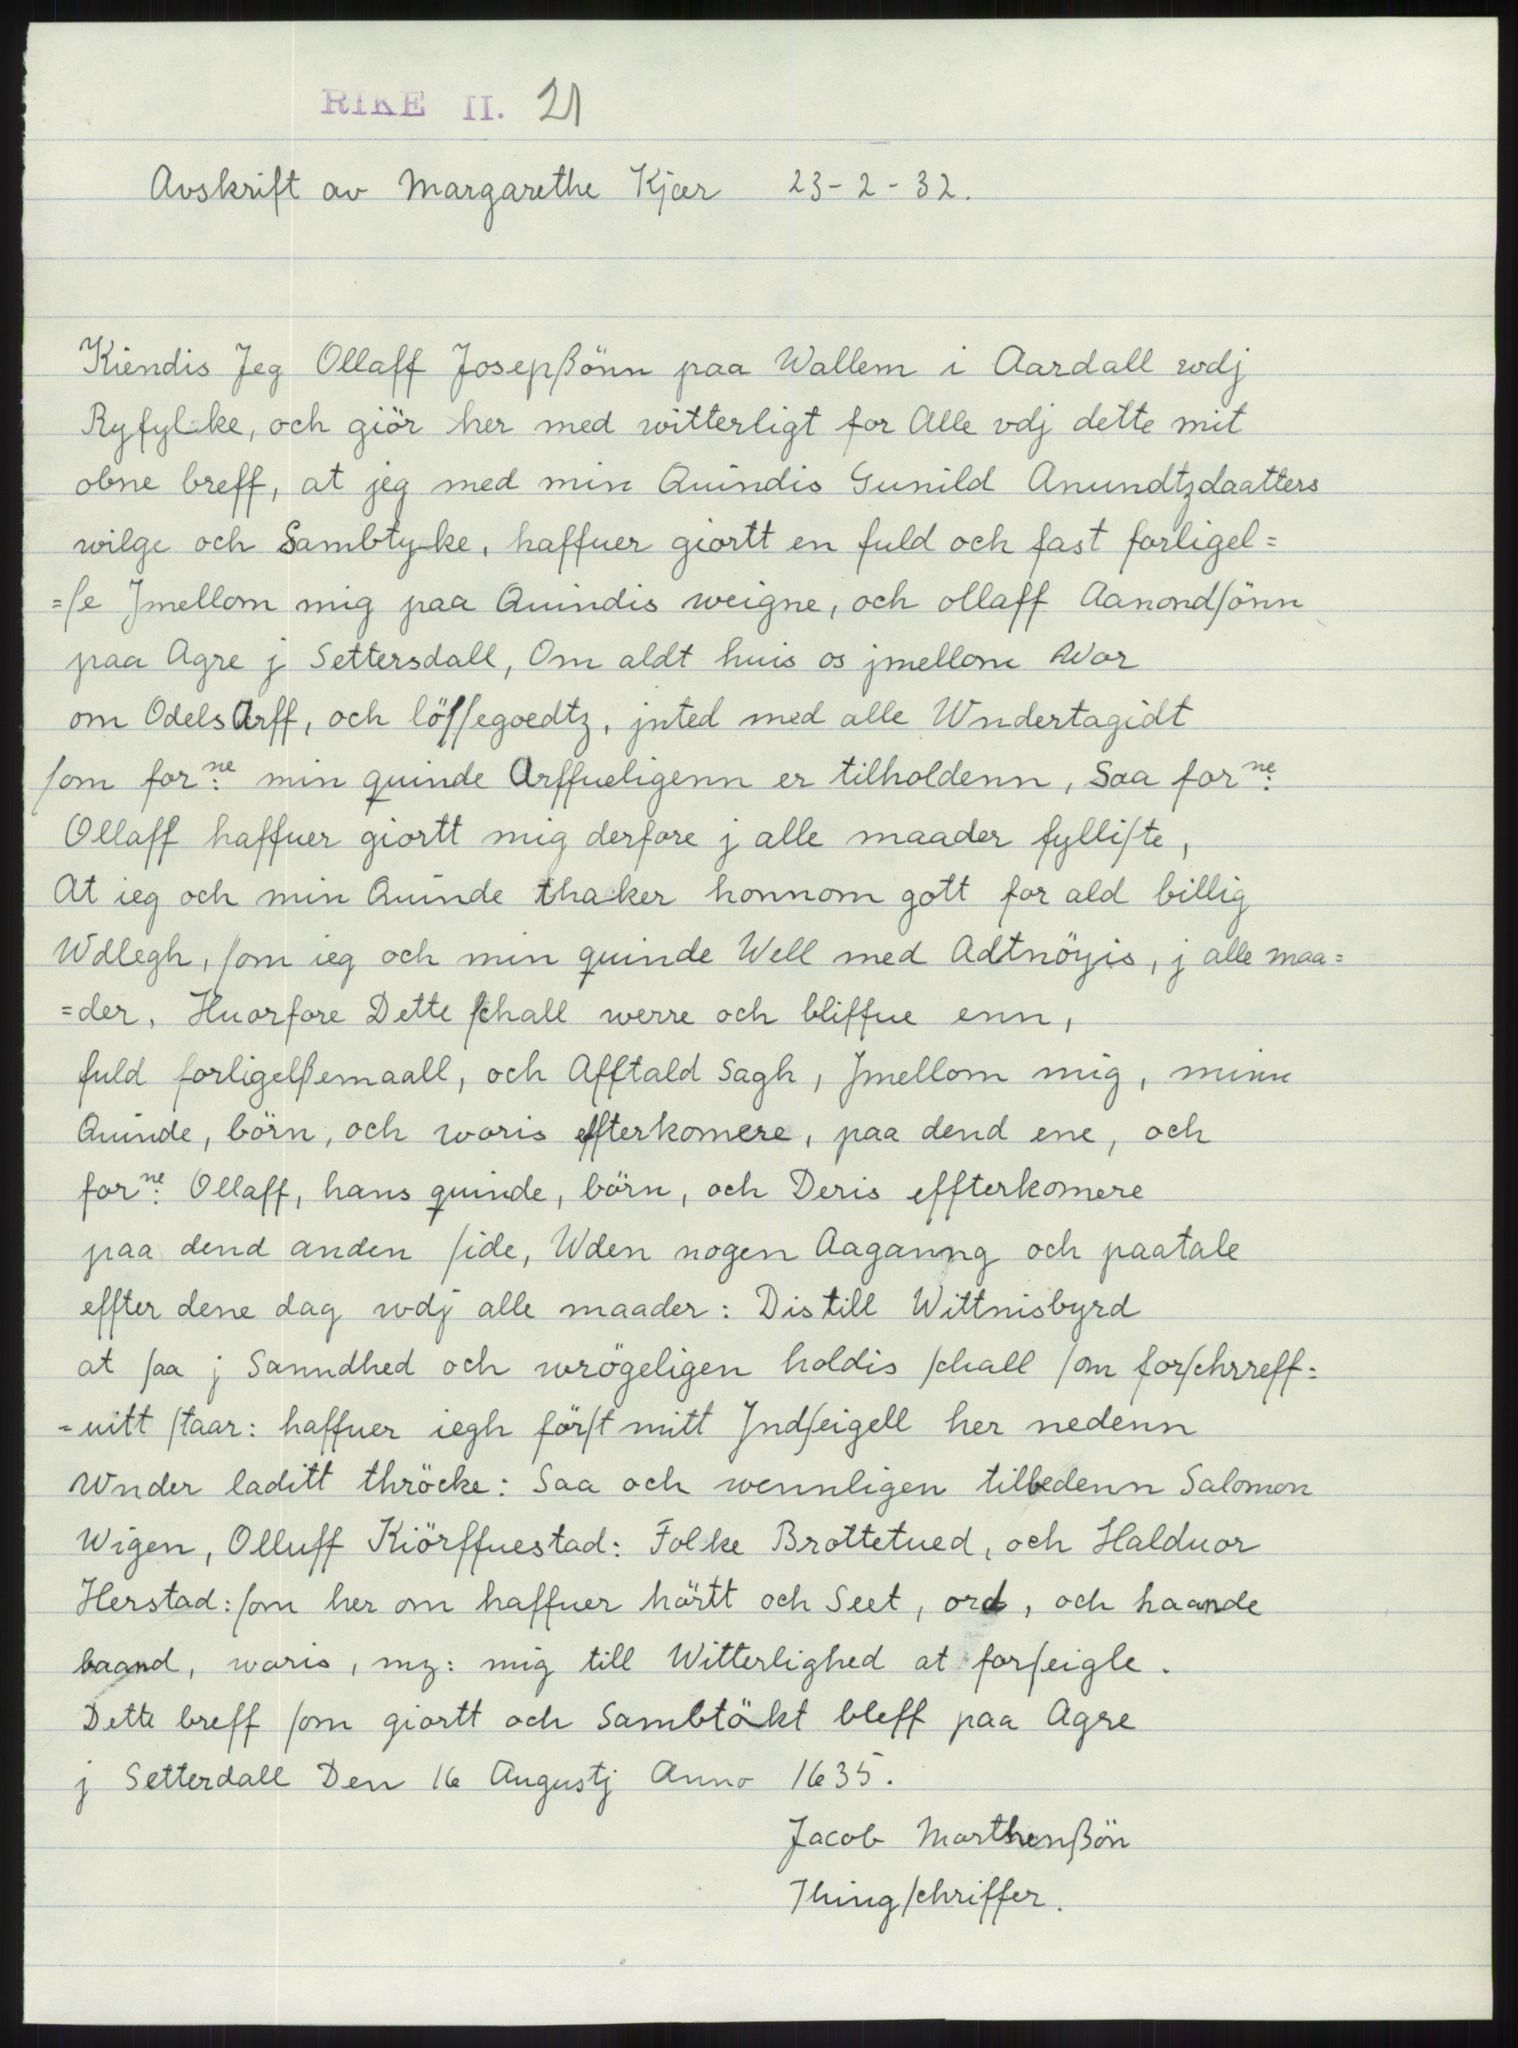 RIKE II. 21
Avskrift av Margarethe Kjær 23-2-32.
Kiendis Jeg Ollaff Josepßönn paa Wallem i Aardall wdj
Ryfylke, och giör her med witterligt for Alle vdj dette mit
obne breff, at jeg med min Quindis Gunild Anundtzdaatters
wilge och Sambtyke, haffuer giortt en fuld och fast forligel=
=ſe Jmellom mig paa Quindis weigne, och ollaff Aanondſönn
paa Agre j Settersdall, Om aldt huis os jmellom War
om Odels Arff, och löſſegoedtz, jnted med alle Wndertagidt
ſom forⁿᵉ: min quinde Arffueligenn er tilholdenn, Saa forⁿᵉ:
Ollaff haffuer giortt mig derfore j alle maader fylliſte,
At ieg och min Quinde thaker honnom gott for ald billig
Wdlegh, ſom ieg och min quinde Well med Adtnöyis, j alle maa=
=der, Huorfore Dette ſchall werre och bliffue enn,
fuld forligelßemaall, och Afftald Sagh, Jmellom mig, minn
Quinde, börn, och woris effterkomere, paa dend ene, och
forⁿᵉ: Ollaff, hans quinde, börn, och Deris effterkomere
paa dend anden ſide, Wden nogen Aaganng och paatale
effter dene dag wdj alle maader: Distill Wittnisbyrd
at ſaa j Sanndhed och wrögeligen holdis ſchall ſom forſchrreff=
=uitt ſtaar: haffuer iegh förſt mitt Jndſeigell her nedenn
Wnder laditt thröcke: Saa och wennligen tilbedenn Salomon
Wigen, Olluff Kiörffuestad: Folke Brottetued, och Halduor
Herstad: ſom her om haffuer hörtt och Seet, ord, och haande
baand, woris, mz: mig till Witterlighed at forſeigle.
Dette breff ſom giortt och Sambtökt bleff paa Agre
j Setterdall Den 16 Augustj Anno 1635.
Jacob Marthenßön
Thingſchriffer.